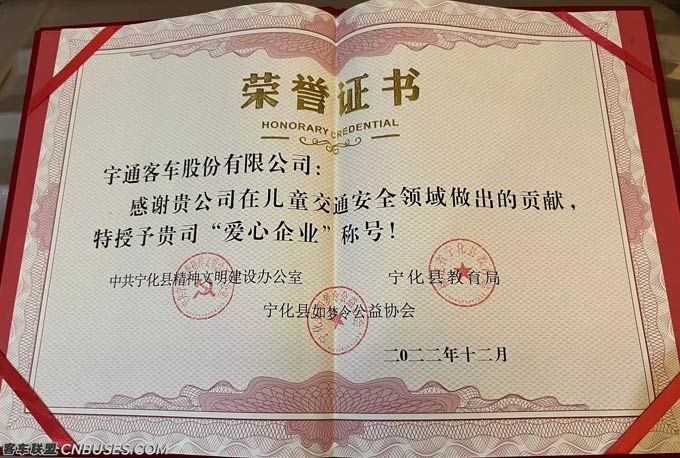 荣誉证书
HONORARY CREDENTIAL
宇通客车股份有限公司：
感谢贵公司在儿童交通安全领域做出的贡献，
特授予贵司“爱心企业”称号！
中共宁化县精神文明建设办公室 宁化县教育局
宁化县如梦令公益协会
二〇二二年十二月
客车联盟 CNBUSES.COM